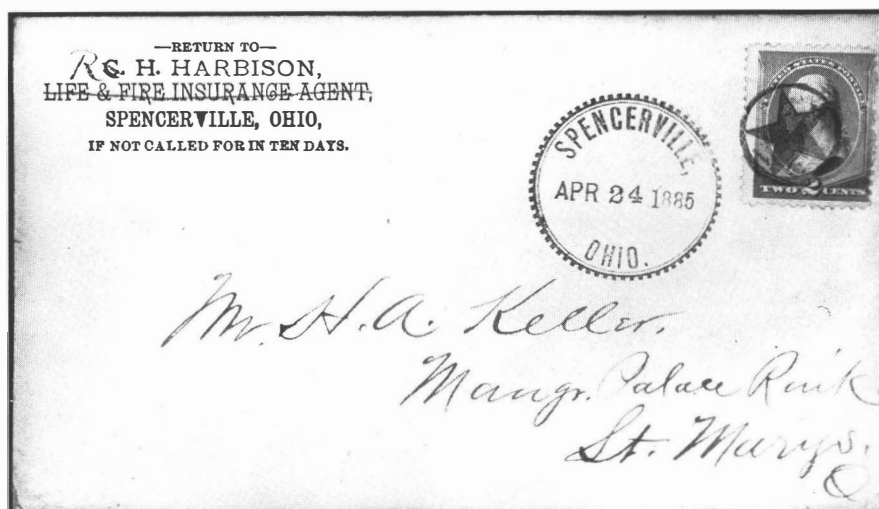 —RETURN TO—
R. G. H. HARBISON,
LIFE & FIRE INSURANCE AGENT,
SPENCERVILLE, OHIO,
IF NOT CALLED FOR IN TEN DAYS.
SPENCERVILLE,
APR 24 1885
OHIO.
UNITED STATES POSTAGE
TWO CENTS
Mr. H. A. Keller.
Mangr. Palace Rink
St. Marys.
O